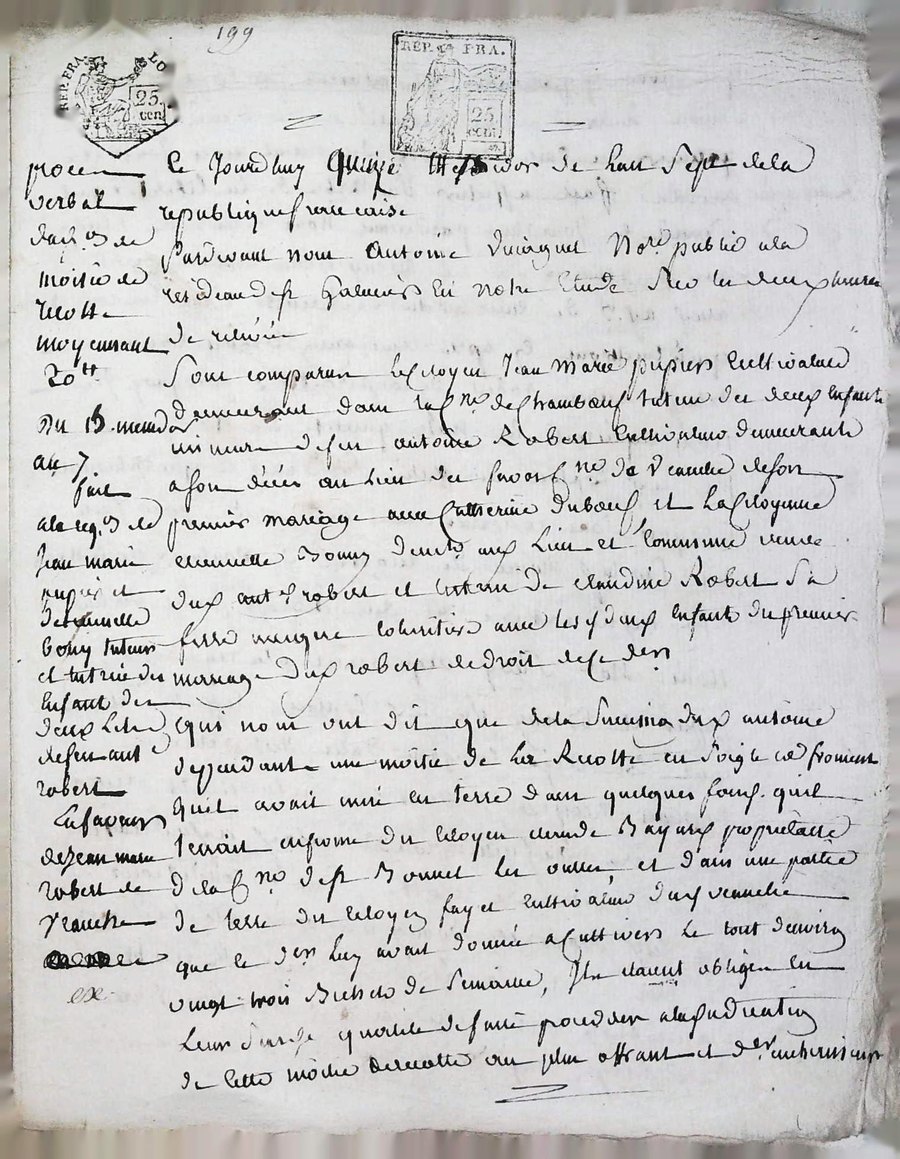 199
REP. FRA. LO
25 cen
REP. FRA.
25 cent
procè
verbal
de
moitié de
recotte
moyennant
20tt
Du 15 messidor
an 7
fait
a la reqon de
Jean marie
pupier et
detiennette
bouy tuteur
et tutrice des
Enfant des
deux Lits
defeu ant
robert
En faveur
de Jean marie
robert de
veauche
ex
Le Jourdhuy Quinze Messidor de Lan Sept dela
republique francaise
Pardevant nous Antoine Notre public ala
résidence de st Galmier En notre Etude Sur les deux heures
de relevée
Sont comparus Le Citoyen Jean Marie pupier Cultivateur
demeurant dans la Cne de Chambœuf tuteur des deux Enfants
mineurs defeu antoine Robert Cultivateur demeurant
a son décès au Lieu des Cne de Veauche de son
premier mariage avec Catherine Dubœuf et La Citoyenne
etiennette Bouy aux Lieu et Commune veuve
dux ant robert et tutrice de claudine Robert Sa
fille mineure Coheritière avec les deux Enfants du premier
mariage dux robert de droit de Ce der
Qui nous ont dit que dela Succession dux antoine
deppendant une moitié de La Recotte en Soigle et froment
Quil avait mise en terre dans quelques fonds quil
tenait enferme du Citoyen claude Bayard propriétaire
de la Cne de st Bonnet Les oulles, et dans une partie
de terre du Citoyen fayet Cultivateur
que le der Luy avait donnée a Cultiver Le tout denviron
vingt trois Bichets de Semaille, Ils étaient obligés En
Leurs dites qualités de faire procéder a Ladjudication
de Cette moitié de recotte au plus offrant et der encherisseur